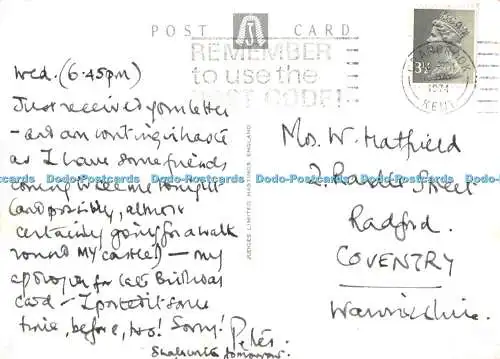 POST CARD
REMEMBER
to use the
POST CODE!
3½
1974
KENT
Wed. (6.45pm)
Just received your letter
– and am writing in haste
as I have some friends
coming to see me tonight
(and possibly, almost
certainly going for a walk
round MY castle) – my
apologies for late Birthday
card – I posted it some
time, before, too! Sorry!
Peter.
tomorrow.
JUDGES LIMITED, HASTINGS, ENGLAND
Mrs. W. Hatfield
2, Street
Radford.
COVENTRY
Warwickshire.
Dodo-Postcards Dodo-Postcards Dodo-Postcards Dodo-Postcards